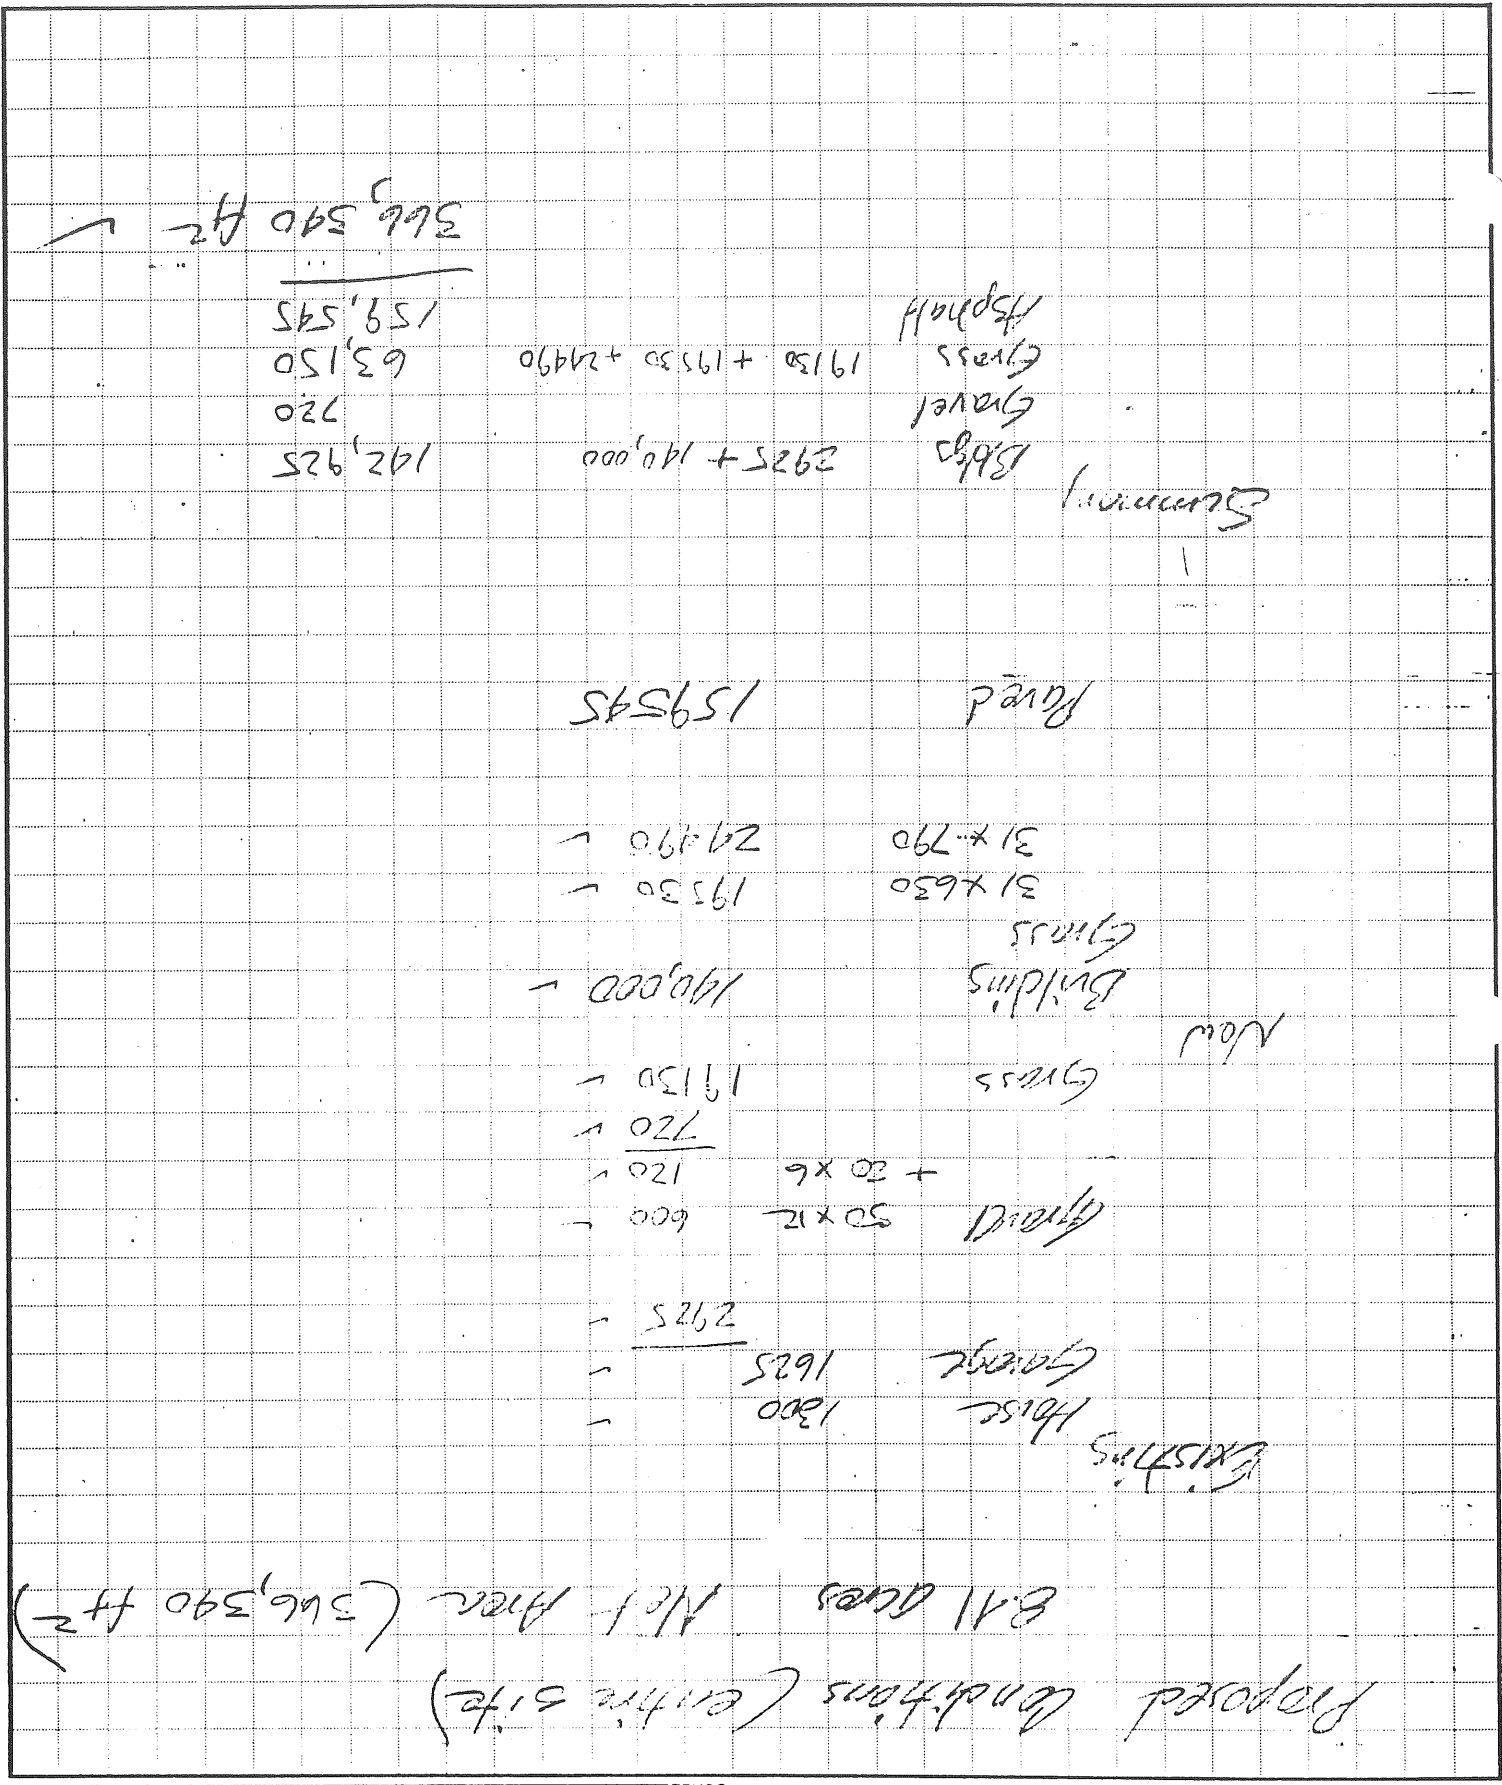 Proposed Conditions (entire site)
8.41 acres Net Area (366,340 ft²)
Existing
House 1300
Garage 1625
2925
Gravel 50 x 12 600
+ 20 x 6 120
720
Grass 19130
New
Building 140,000
Grass
31 x 630 19530
31 x 790 24490
Paved 159545
Summary
Bldgs 2925 + 140,000 142,925
Gravel 720
Grass 19130 + 19530 + 24490 63,150
Asphalt 159,545
366,340 ft²